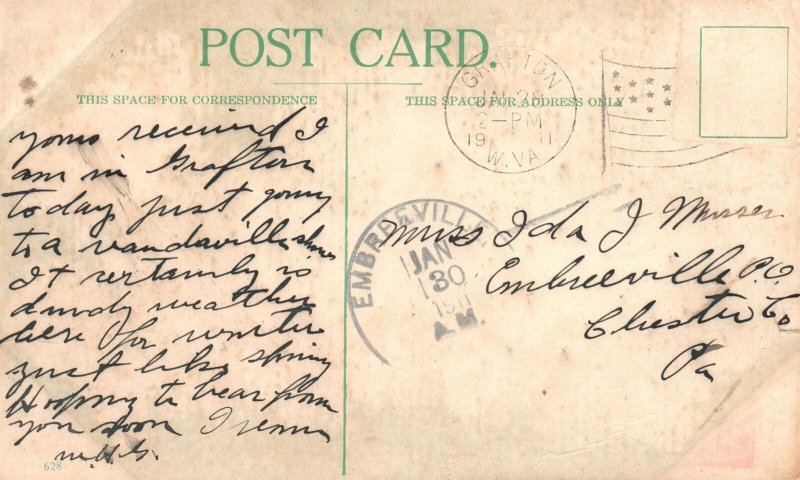 POST CARD.
THIS SPACE FOR CORRESPONDENCE
THIS SPACE FOR ADDRESS ONLY
GRAFTON
JAN 28
2-PM
1911
W.VA.
EMBREEVILLE
JAN
30
1911
A.M.
yours received I
am in Grafton
today just going
to a vaudaville show
It certainly is
dandy weather
here for winter
just like spring
Hoping to hear from
you soon I remain
W.H.G.
628
Miss Ida J Musser
Embreeville P.O.
Chester Co
Pa